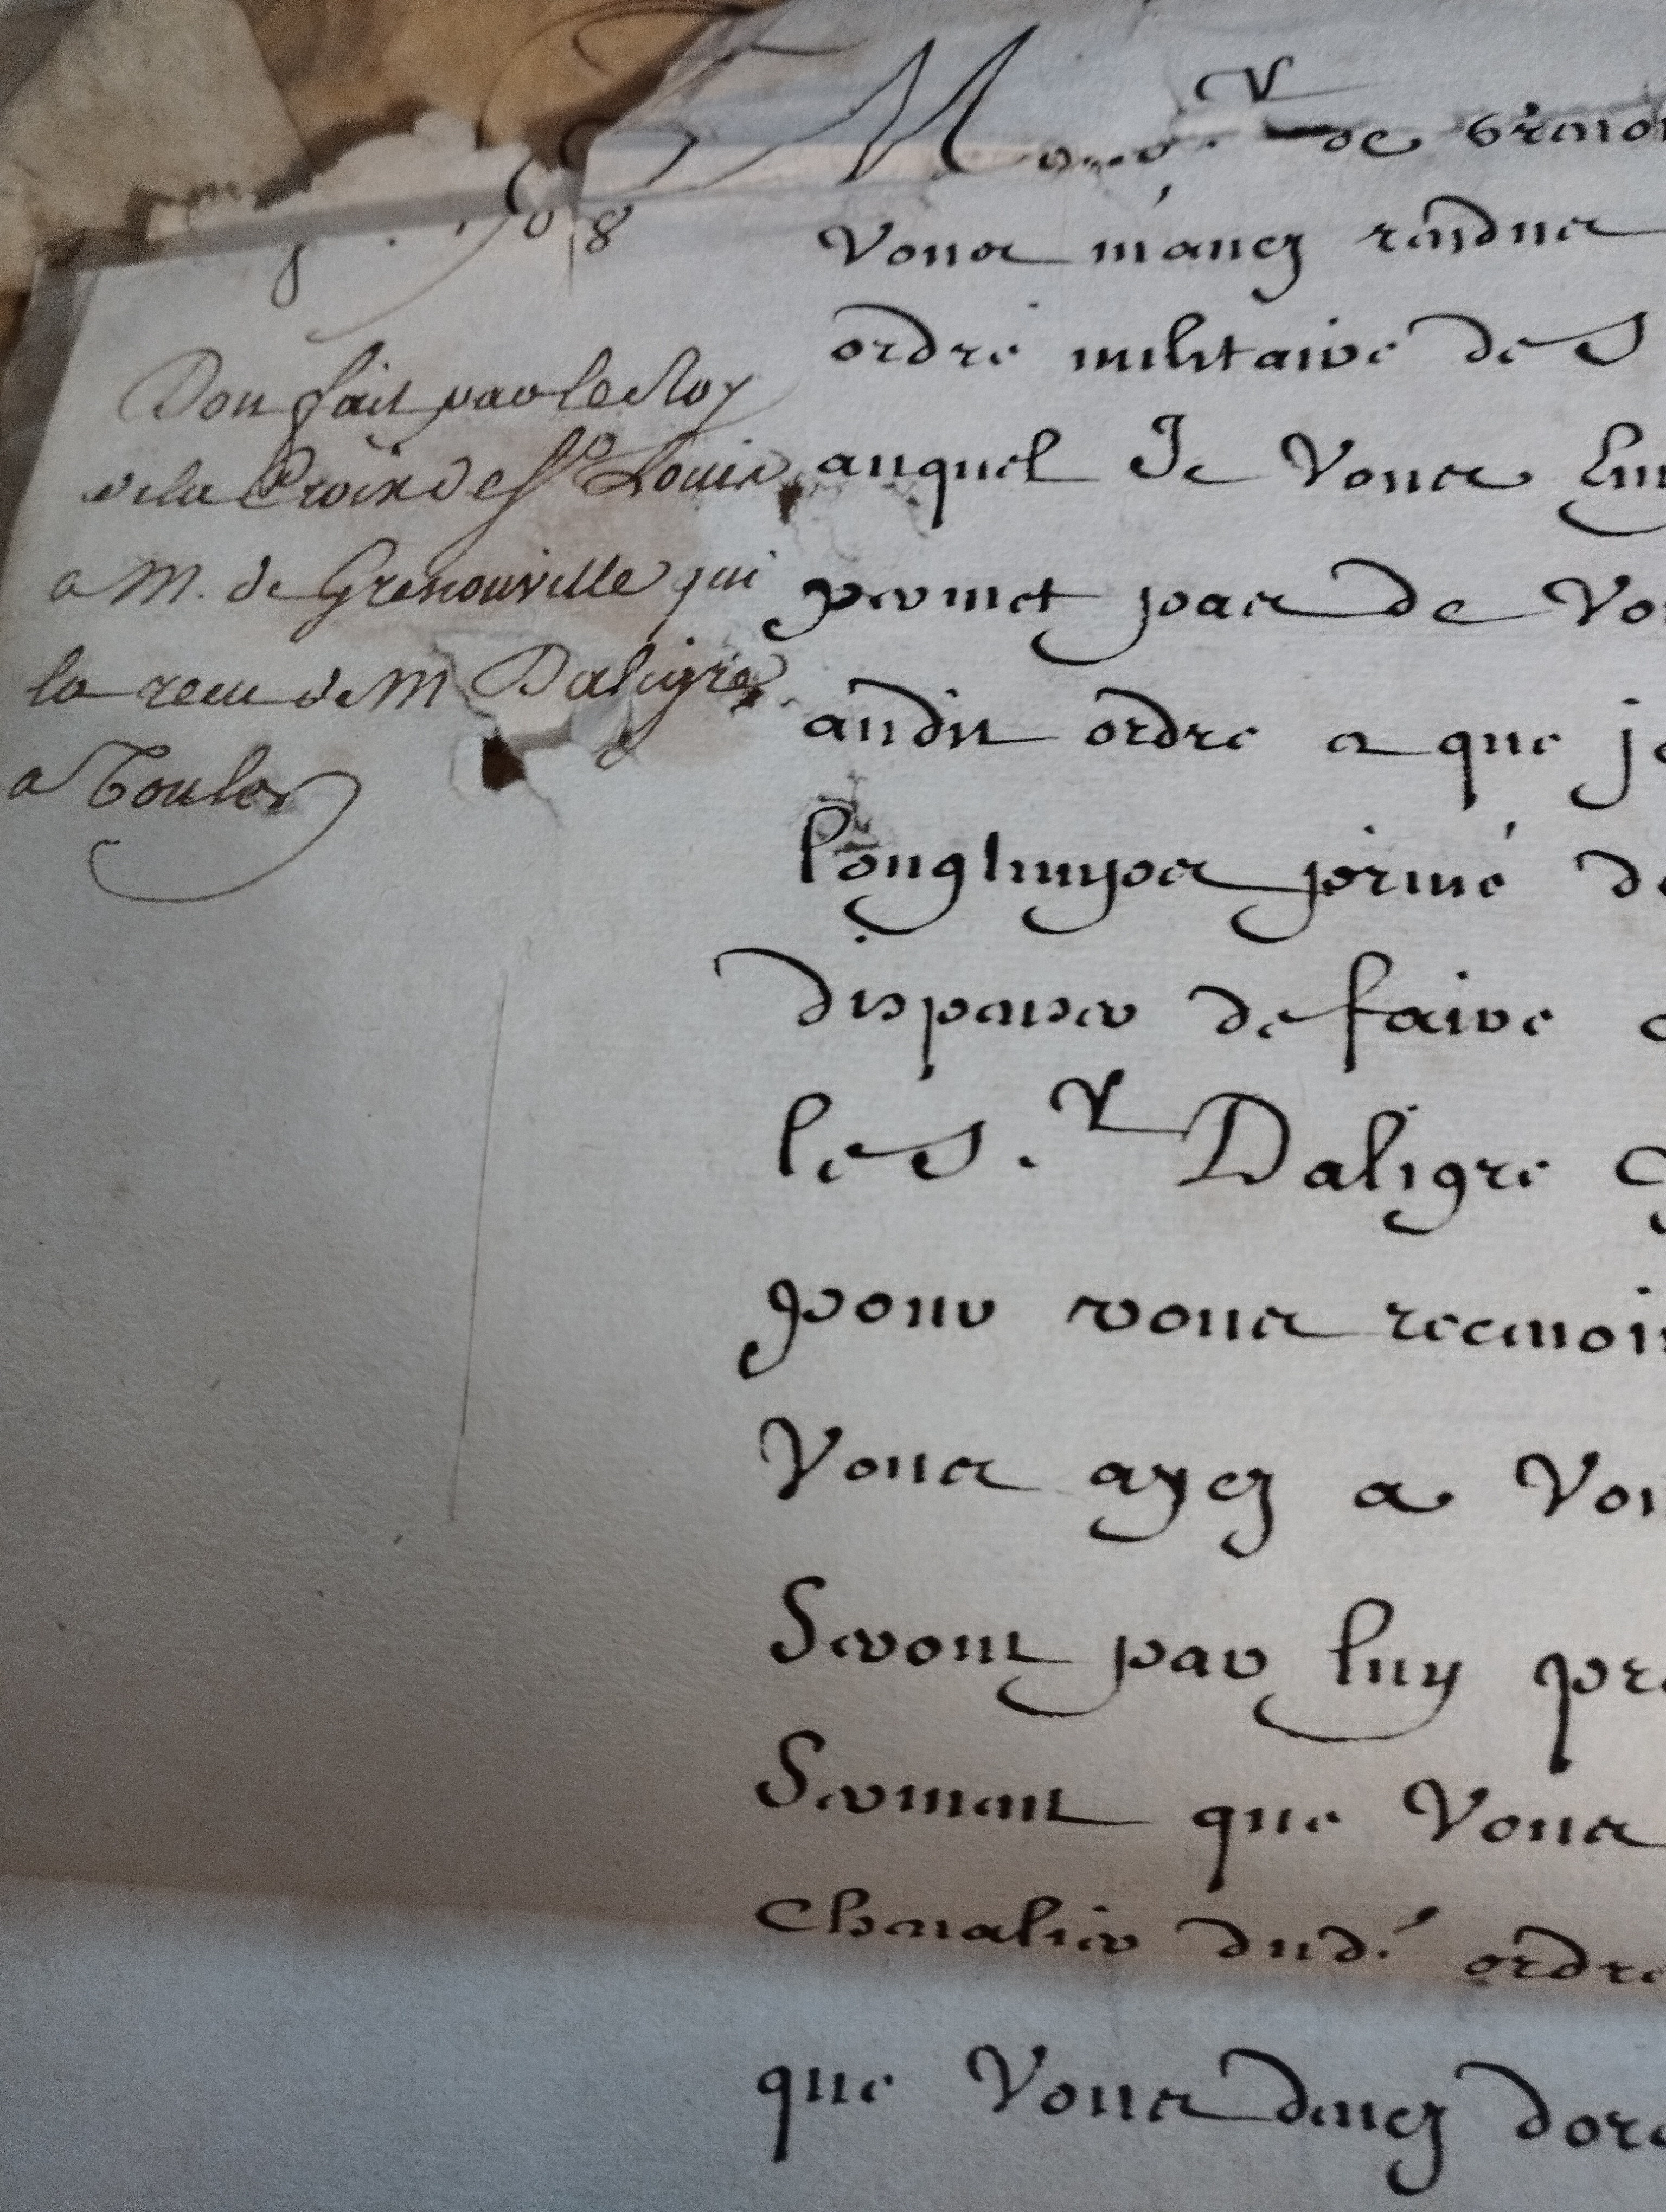 1708
Don fait par le Roy
de la Croix de St Louis
a M. de Grenouville qui
la receu de M Daligre
a Toulon
Monsr. de Grenou
Vous m'auez randus
ordre militaire de S
auquel Je Vous
permet pas de Vo
audit ordre a que je
longtemps priué de
dispenser de faire
le S.r Daligre
pour vous receuoir
Vous ayez a Vou
Seront par luy pre
Serment que Vous
Cheualier dud. ordre
que Vous deuez dore